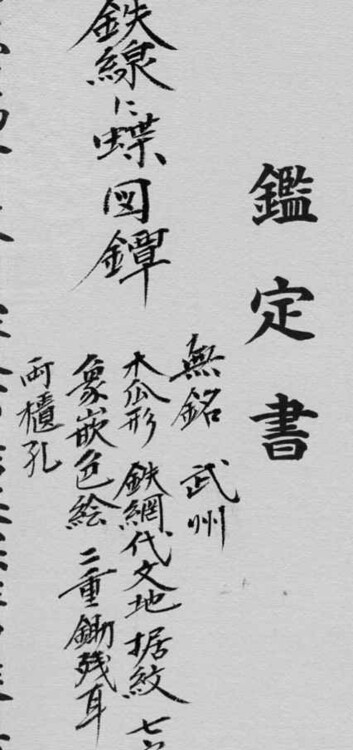 鑑定書
鉄線に蝶図鐔
無銘 武州
木瓜形 鉄網代文地 据紋
象嵌色絵 二重鋤残耳
両櫃孔